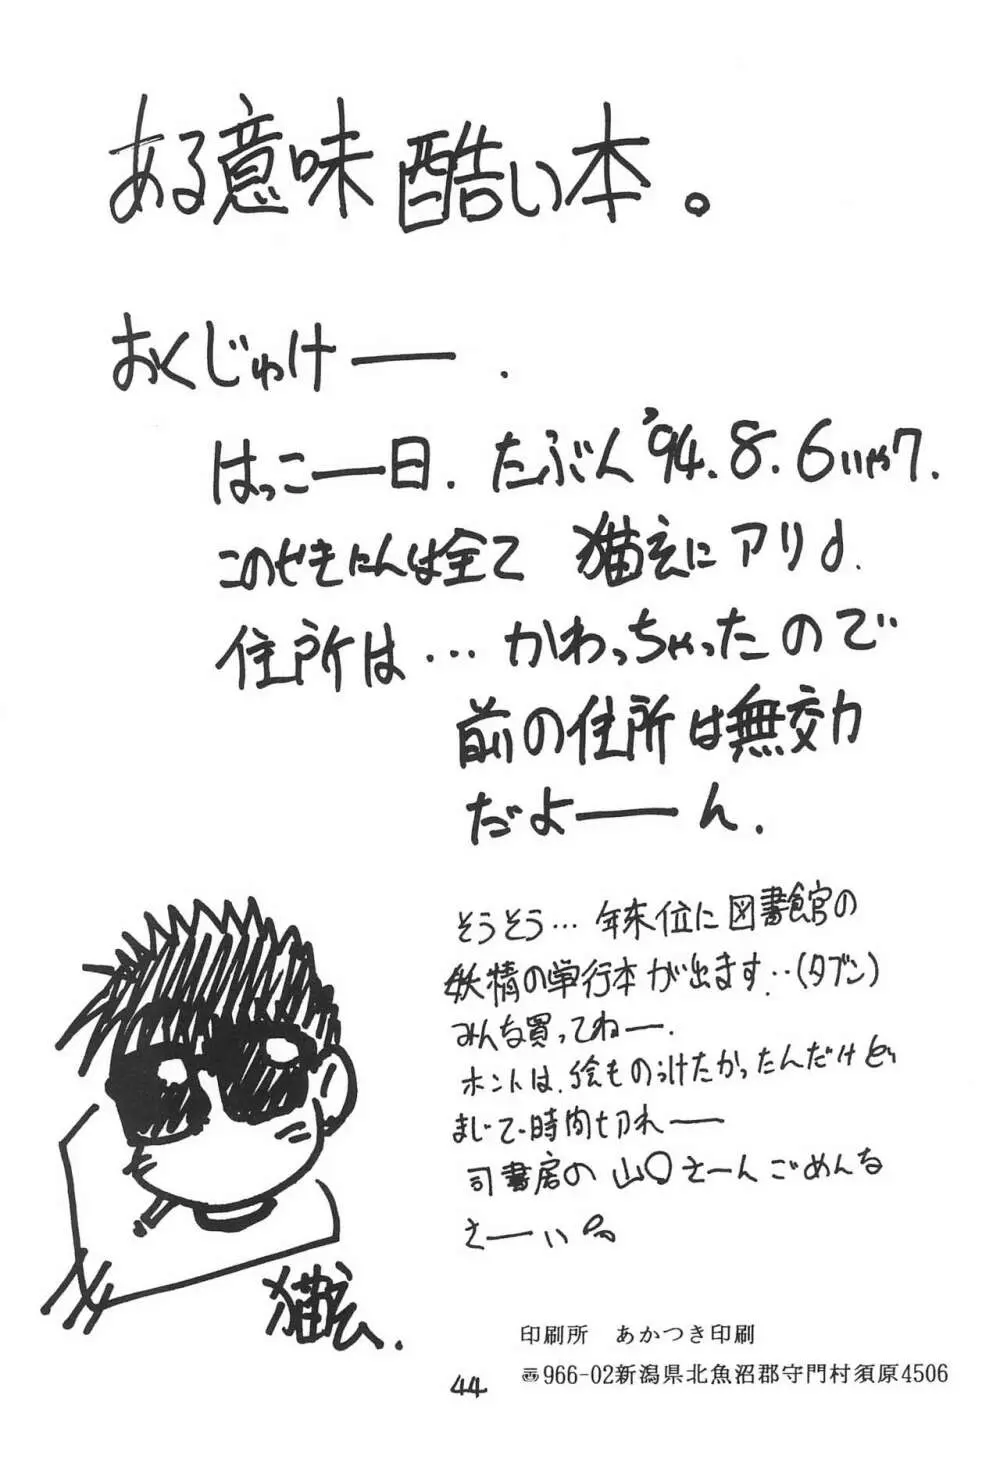 ある意味 酷い本。
おくじゅけー.
はっこー日. たぶん '94.8.6いや7.
このせきにんは全て 猫玄にアリ♪.
住所は…かわっちゃったので
前の住所は無効
だよーん.
そうそう…年末位に図書館の
妖精の単行本が出ます..(タブン)
みんな買ってねー.
ホントは、絵ものっけたかったんだけど
まじで時間切れー
司書房の 山〇さーんごめんな
さーい
猫玄.
印刷所 あかつき印刷
966-02新潟県北魚沼郡守門村須原4506
44